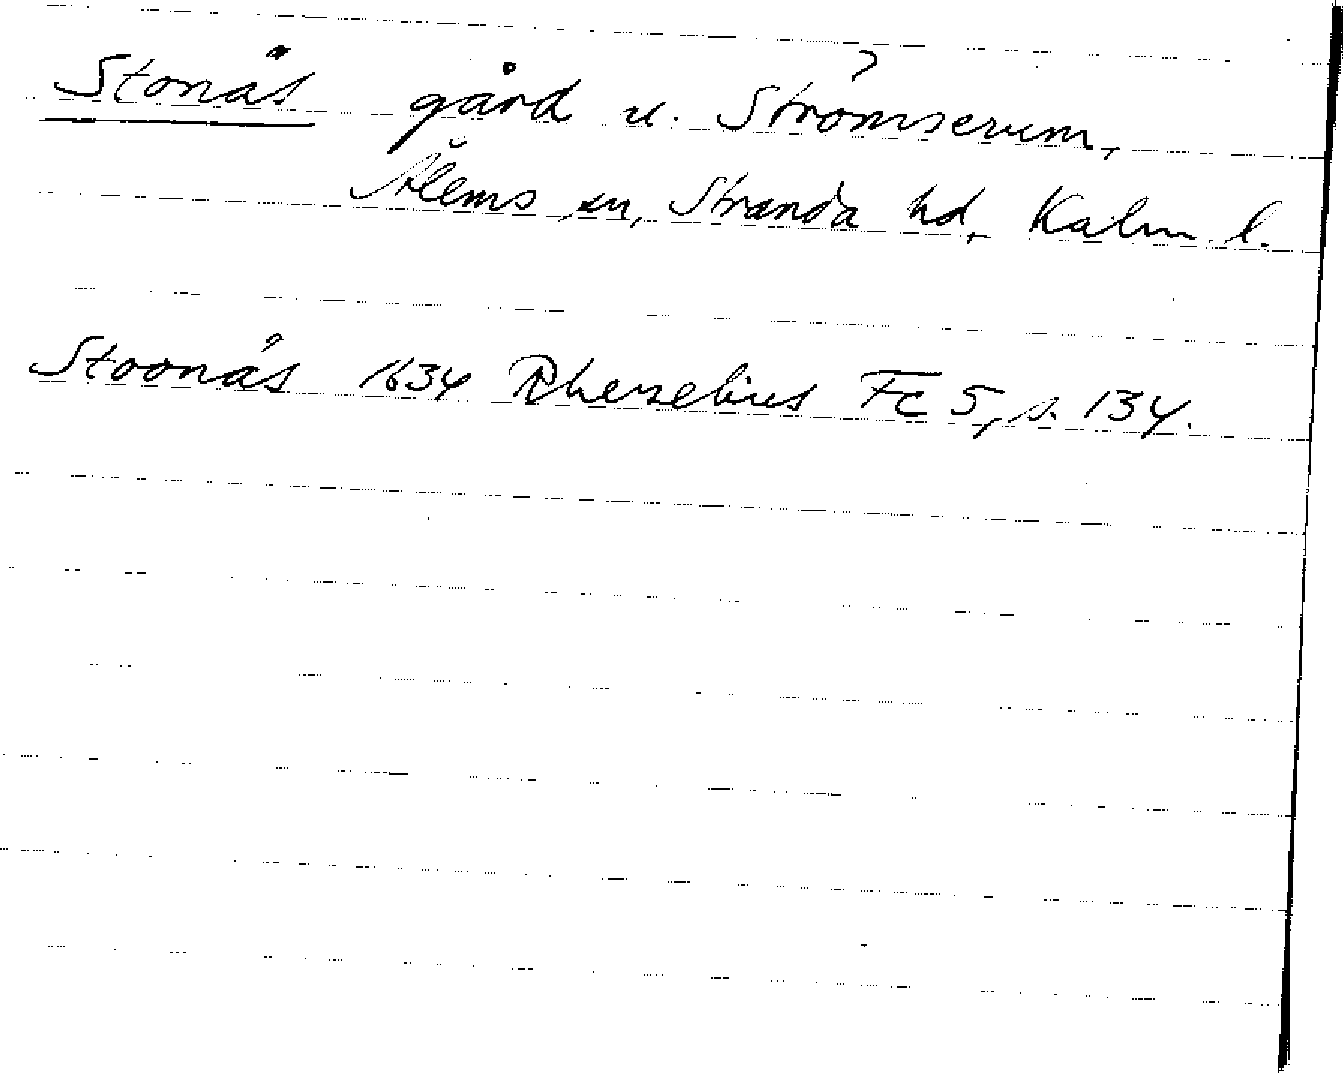 Stonäs gård u. Strömserum,
Ålems sn, Stranda hd, Kalm l.
Stoonäs 1634 Rhezelius Fc 5, s. 134.